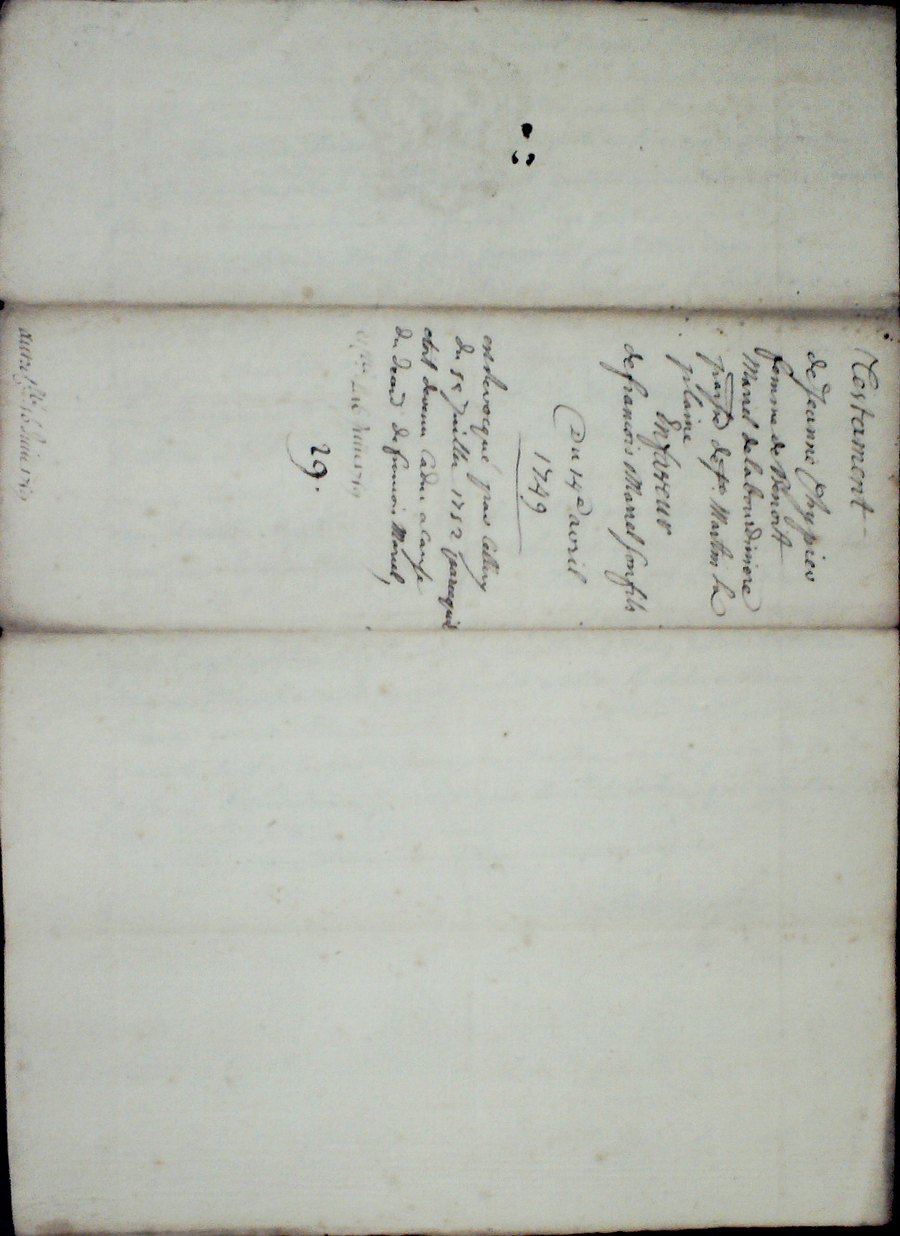 Testament
de Jeanne Chypier
femme de Benoit
Morel de la boudiniere
parsse de St Martin la
plaine
En faveur
de francois Morel son fils
Du 14e avril
1749
est revoqué par celluy
du 5e juillet 1752 parcequil
etoit devenu caduc a cause
du deces de francois Morel
29.